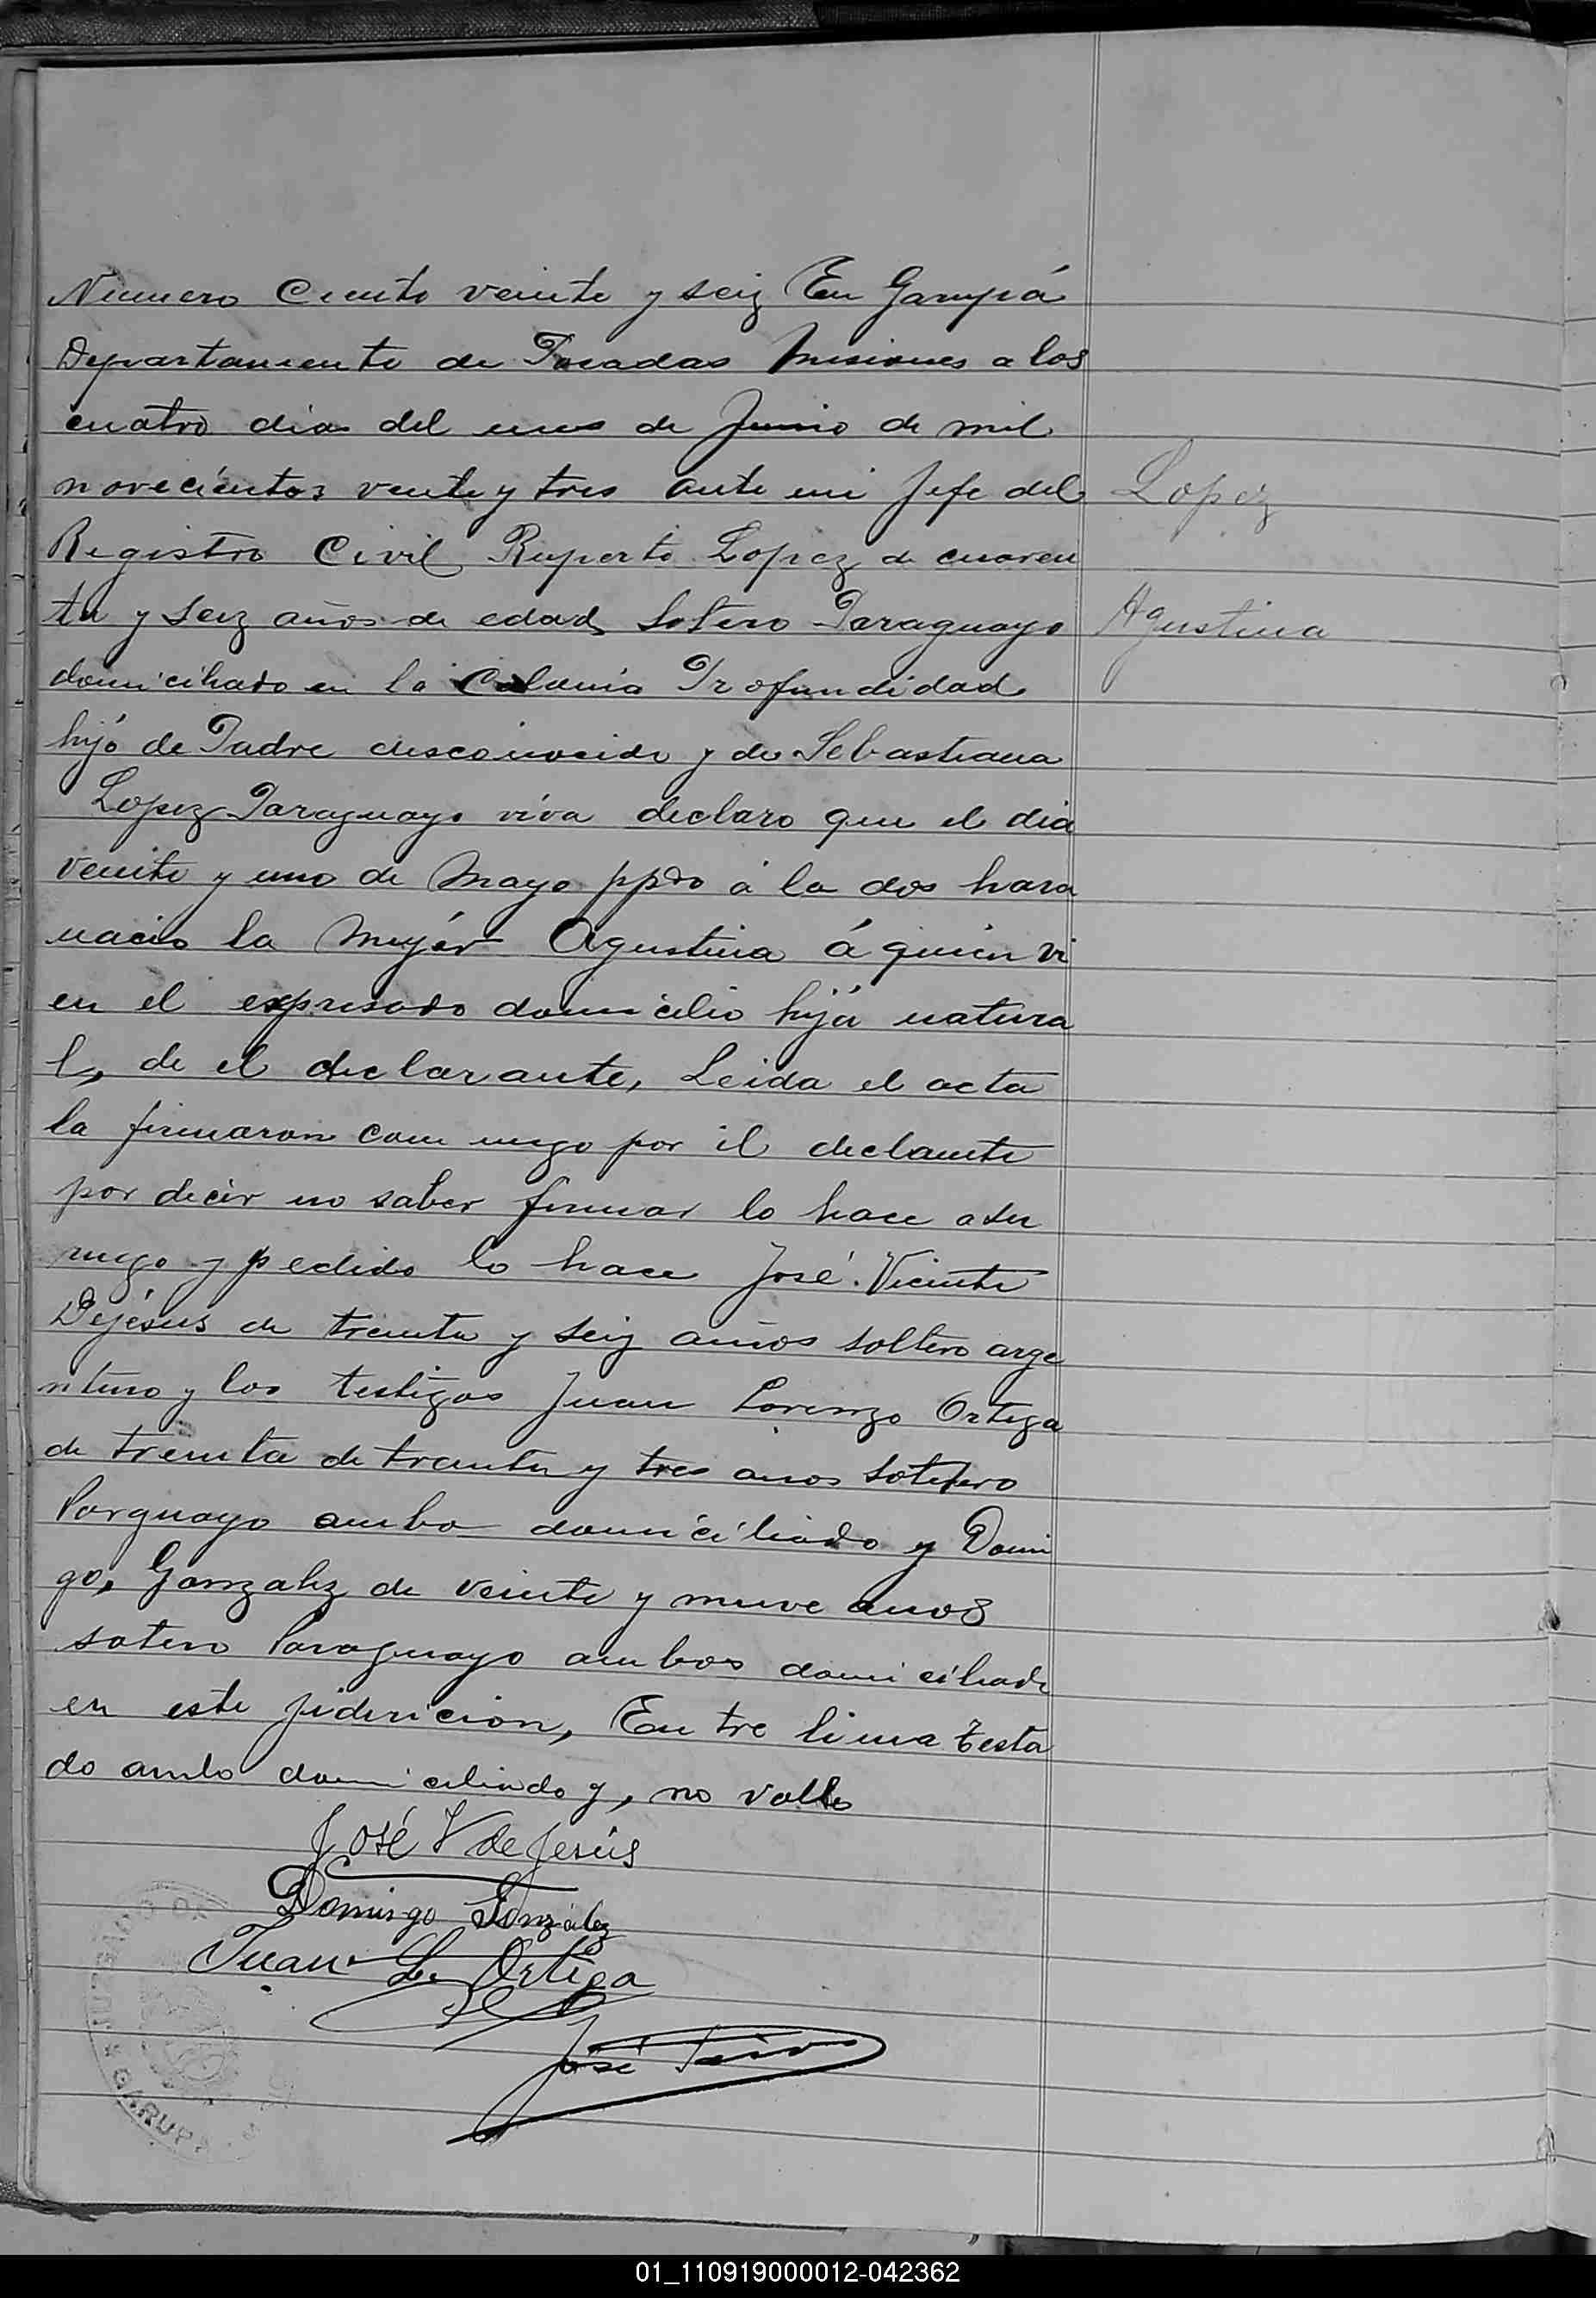 Numero Ciento veinte y seiz En Garupá
Departamento de Posadas Misiones a los
cuatro dias del mes de Junio de mil
novecíentos veinte y tres ante mi Jefe del
Lopez
Registro Civil Ruperto Lopez de cuaren
ta y seiz años de edad Soltero Paraguayo
Agustina
domiciliado en la Colonia Profundidad
hijó de Padre desconocido y de Sebastiana
Lopez Paraguayo viva declaro que el dia
veinte y uno de Mayo ppdo á la dos hara
nacio la Mujér Agustina á quien vi
en el expresado domicilio hijá natura
l, de el declarante, Leida el acta
la firmaron com migo por il declante
por decir no saber firmar lo hace a su
ruego y pedido lo hace José. Vicente
Dejésus de treinta y seiz años soltero arge
ntino y los testigos Juan Lorenzo Ortega
de treinta de treinta y tres anos Soltero
Parguayo ambo domiciliado y Domi
go, Gonzalez de veinte y nueve anos
sotero Paraguayo ambos domiciliado
en este , Entre linia testa
do ambo domiciliado y, no valle
José V de Jesús
Domingo González
Juan L. Ortega
José
JUZGADO DE
GARUPA
01_110919000012-042362